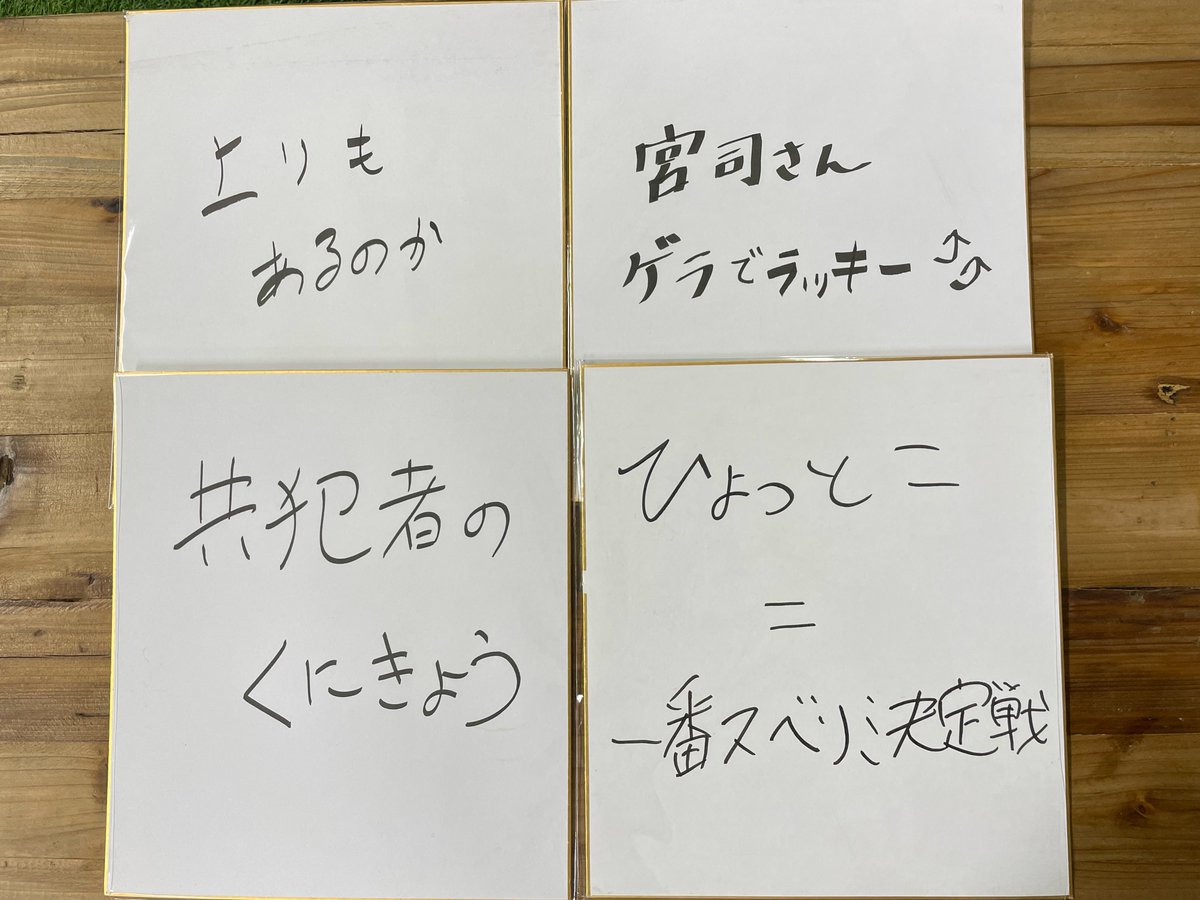 上りも
あるのか
宮司さん
ゲラでラッキー⤴⤴
共犯者の
くにきょう
ひょっとこ
=
一番スベリ決定戦